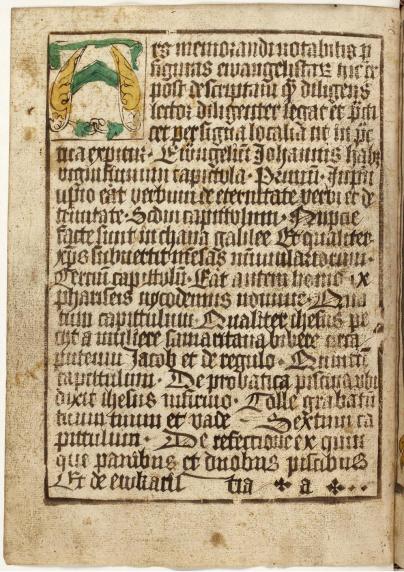 Ars memorandi notabilis p
figuras ewangelistarum hic ex
post descriptam quam diligens
lector diligenter legat et practi
cet per signa localia ut in prac
tica expitur. Ewangelium Johannis habz
viginti unum capitula. Primum. In prin
cipio erat verbum de eternitate verbi et de
trinitate. Secundum capittulum. Nupcie
facte sunt in chana galilee Et qualiter
xps subvertit mensas nummulariorum.
Tercium capittulum. Erat autem homo ex
phariseis nycodemus nomine. Quar
tum capittulum. Qualiter ihesus pe
cyt a muliere samaritana bibere circa
puteum Jacob et de regulo. Quintum
capittulum. De probatica piscina ubi
dixit ihesus infirmo. Tolle grabatum
tuum et vade. Sextum ca
pittulum. De refectione ex quin
que panibus et duobus piscibus
Et de ewkaris tia a